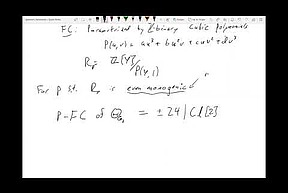 FG: Parametrized by Z binary cubic polynomials
P(u,v) = au³ + bu²v + cuv² + dv³
R_P = Z[Y]/P(Y,1)
For P st. R_P is even monogenic
P-FC of = ± 24 | Cl[2]